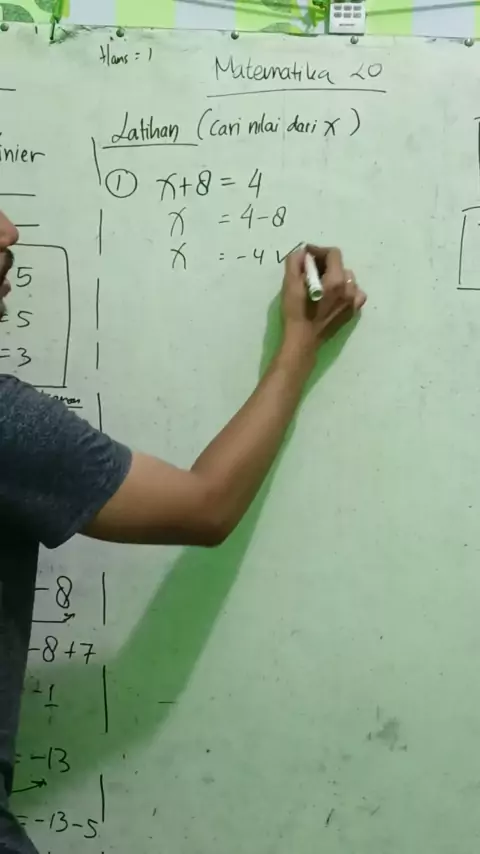 Hans = 1
Matematika 20
Latihan (cari nilai dari x)
① x+8 = 4
x = 4-8
x = -4 ✓
inier
5
= 5
= 3
-8
-8+7
-1
= -13
= -13-5